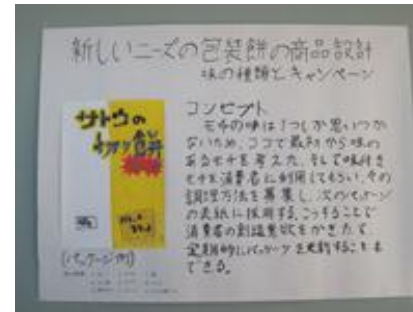 新しいニーズの包装餅の商品設計
味の種類とキャンペーン
サトウの
切り餅
コンセプト
モチの味は1つしか思いつか
ないため、ココで最初から味の
あるモチを考えた。そして味付き
モチを消費者に利用してもらい、その
調理方法を募集し、次のパッケージ
の表紙に採用する。こうすることで
消費者の創造意欲をかきたて
定期的にパッケージを更新することも
できる。
(パッケージ例)